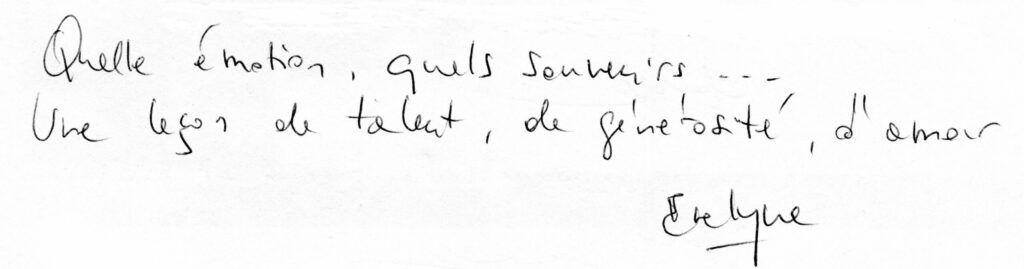 Quelle émotion, quels souvenirs ---
Une leçon de talent, de générosité, d'amour
Evelyne